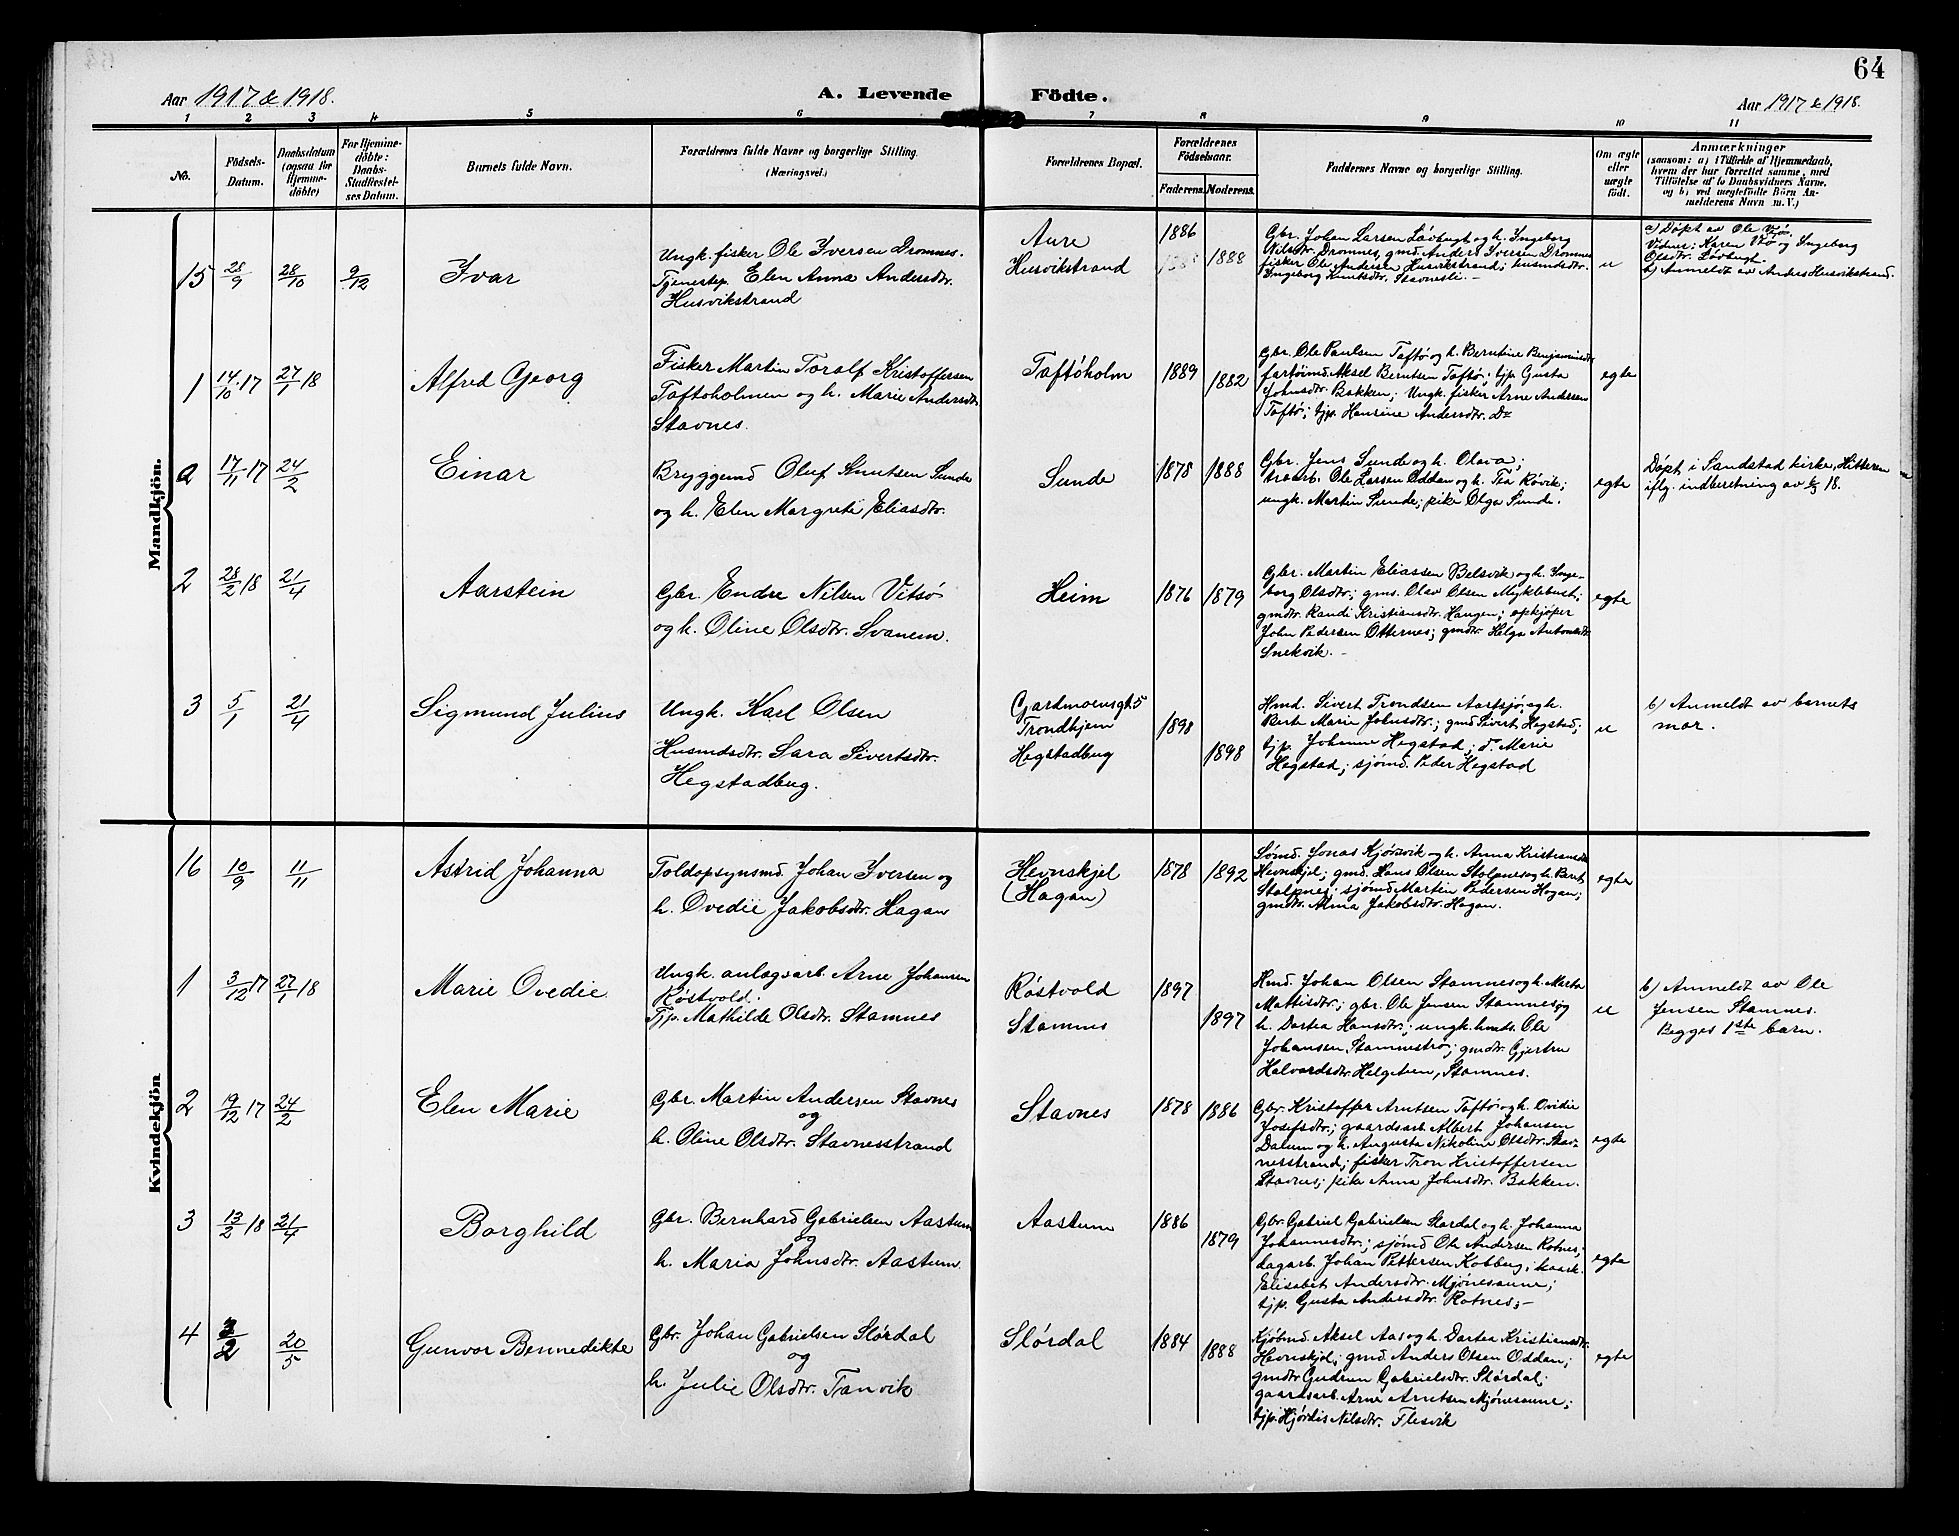 64
Aar 1917 & 1918.
A. Levende Födte.
Aar 1917 & 1918.
1 2 3 4 5 6 7 8 9 10 11
No.
Födsels-
Datum.
Daabsdatum
(ogsaa for
Hjemme-
döbte)
For Hjemme-
döbte:
Daabs-
Stadfæstel-
ses Datum.
Barnets fulde Navn.
Forældrenes fulde Navne og borgerlige Stilling.
(Næringsvei.)
Forældrenes Bopæl.
Forældrenes
Födselsaar.
Faderens. Moderens.
Faddernes Navne og borgerlige Stilling.
Om ægte
eller
uægte
födt.
Anmærkninger
(saasom: a) i Tilfælde af Hjemmedaab,
hvem der har forrettet samme, med
Tilföielse af to Daabsvidners Navne,
og b) ved uægtefödte Börn An-
melderens Navn m. V.)
Mandkjön.
15 28/9 28/10 9/12
Ivar
Ungk. fisker Ole Iversen Dromnes.
Tjenestep. Elen Anna Andersdtr.
Husvikstrand
Aure
Husvikstrand
1886 1888
Gbr. Johan Larsen Lövbugt og h. Ingeborg
Nilsdtr. Dromnes, gmd. Anders Iversen Dromnes
fisker Ole Andersen Husvikstrand; husmdsdtr.
Ingeborg Knutsdtr. Stavnesli. -
u
a) Döpt av Ole Vjö.
Vidner: Karen Vjö og Ingeborg
Olsdtr. Lövbugt.
b) Anmeldt av Anders Husvikstrand.
1 14/10 17 27/1 18
Alfred Georg
Fisker Martin Toralf Kristoffersen
Taftöholmen og h. Marie Andersdtr.
Stavnes.
Taftöholm
1889 1882
Gbr. Ole Paulsen Taftö og h. Berntine Benjaminsdtr.
fartöimd. Aksel Berntsen Taftö; tjp. Gusta
Johnsdtr. Bakken; Ungk. fisker Arne Andersen
Taftö; tjp. Hansine Andersdtr. Do
egte
2 17/11 17 24/2
Einar
Bryggemd Oluf Knutsen Sunde
og h. Elen Margrete Eliasdtr.
Sunde
1878 1888
Gbr. Jens Sunde og h. Olava;
traarb. Ole Larsen Oddan og h. Tea Rövik;
ungk. Martin Sunde; pike Olga Sunde.
egte
Döpt i Sandstad kirke, Hitteren
iflg. indberetning av 18.
2 28/2 18 21/4
Aarstein
Gbr. Endre Nilsen Vitsö
og h. Oline Olsdtr. Svanem.
Heim
1876 1879
Gbr. Martin Eliassen Belsvik og h. Inge-
borg Olsdtr.; gms. Olav Olsen Myklebust;
gmdtr. Randi Kristiansdtr. Haugen; opkjöper
John Pedersen Otternes; gmdtr. Helga Antonsdtr.
Snekvik. -
egte
3 5/1 21/4
Sigmund Julius
Ungk. Karl Olsen
Husmdsdtr. Sara Sivertsdtr.
Hegstadbug.
Gartmoensgt. 5
Trondhjem
Hegstadbug
1898 1898
Hmd. Sivert Trondsen Aartsjö, og h.
Berte Marie Johnsdtr.; gmd Sivert Hegstad;
tjp. Johanne Hegstad; Marie
Hegstad; sjömd. Peder Hegstad
u
b) Anmeldt av barnets
mor.
Kvindekjön
16 10/9 11/11
Astrid Johanna
Toldopsynsmd. Johan Iversen og
h. Ovedie Jakobsdtr. Hagan
Hevnskjel
(Hagan)
1878 1892
Sömd. Jonas Kjörsvik og h. Anna Kristiansdtr.
Hevnskjel; gmd. Hans Olsen Stolpnes og h. Berit
Stolpnes; sjömd Martin Pedersen Hogan;
gmdtr. Alma Jakobsdtr. Hogan.
egte
1 3/12 17 27/1 18
Marie Ovedie
Ungk. anlægsarb. Arne Johansen
Röstvold.
Tjp. Mathilde Olsdtr. Stamnes
Röstvold
Stamnes
1897 1897
Hmd. Johan Olsen Stamnes og h. Marta
Mattisdtr.; gbr. Ole Jensen Stamnes og
h. Dortea Hansdtr.; ungk. hmts. Ole
Johansen Stamneströ; gmdtr. Gjertru
Halvardsdtr. Helgetun, Stamnes.
u
b) Anmeldt av Ole
Jensen Stamnes.
Begges 1ste barn.
2 19/12 17 24/2
Elen Marie
Gbr. Martin Andersen Stavnes
og
h. Oline Olsdtr. Stavnesstrand
Stavnes
1878 1886
Gbr. Kristoffer Arntsen Taftö og h. Ovidie
Josefsdtr.; gaardsarb. Albert Johansen
Dalum og h. Augusta Nikoline Olsdtr. Stav-
nesstrand; fisker Tron Kristoffersen
Stavnes; pike Anna Johnsdtr. Bakken.
egte
3 13/2 18 21/4
Borghild
Gbr. Bernhard Gabrielsen Aastum
og
h. Maria Johnsdtr. Aastum.
Aastum
1886 1879
Gbr. Gabriel Gabrielsen Slördal og h. Johanna
Johannesdtr.; sjömd Ole Andersen Rotnes;
dagarb. Johan Pettersen Kobbug;
Elisabet Andersdtr. Mjönesaune;
tjp. Gusta Andersdtr. Rotnes; -
egte
4 3/2 20/5
Gunvor Bennedikte
Gbr. Johan Gabrielsen Slördal
og
h. Julie Olsdtr. Tranvik
Slördal
1884 1888
Kjöbmd. Aksel Aas og h. Dortea Kristiansdtr.
Hevnskjel; gmd. Anders Olsen Oddan;
gmdtr Gudrun Gabrielsdtr. Slördal;
gaardsarb. Arne Arntsen Mjönesaune;
tjp. Hjördis Nilsdtr. Flesvik
egte